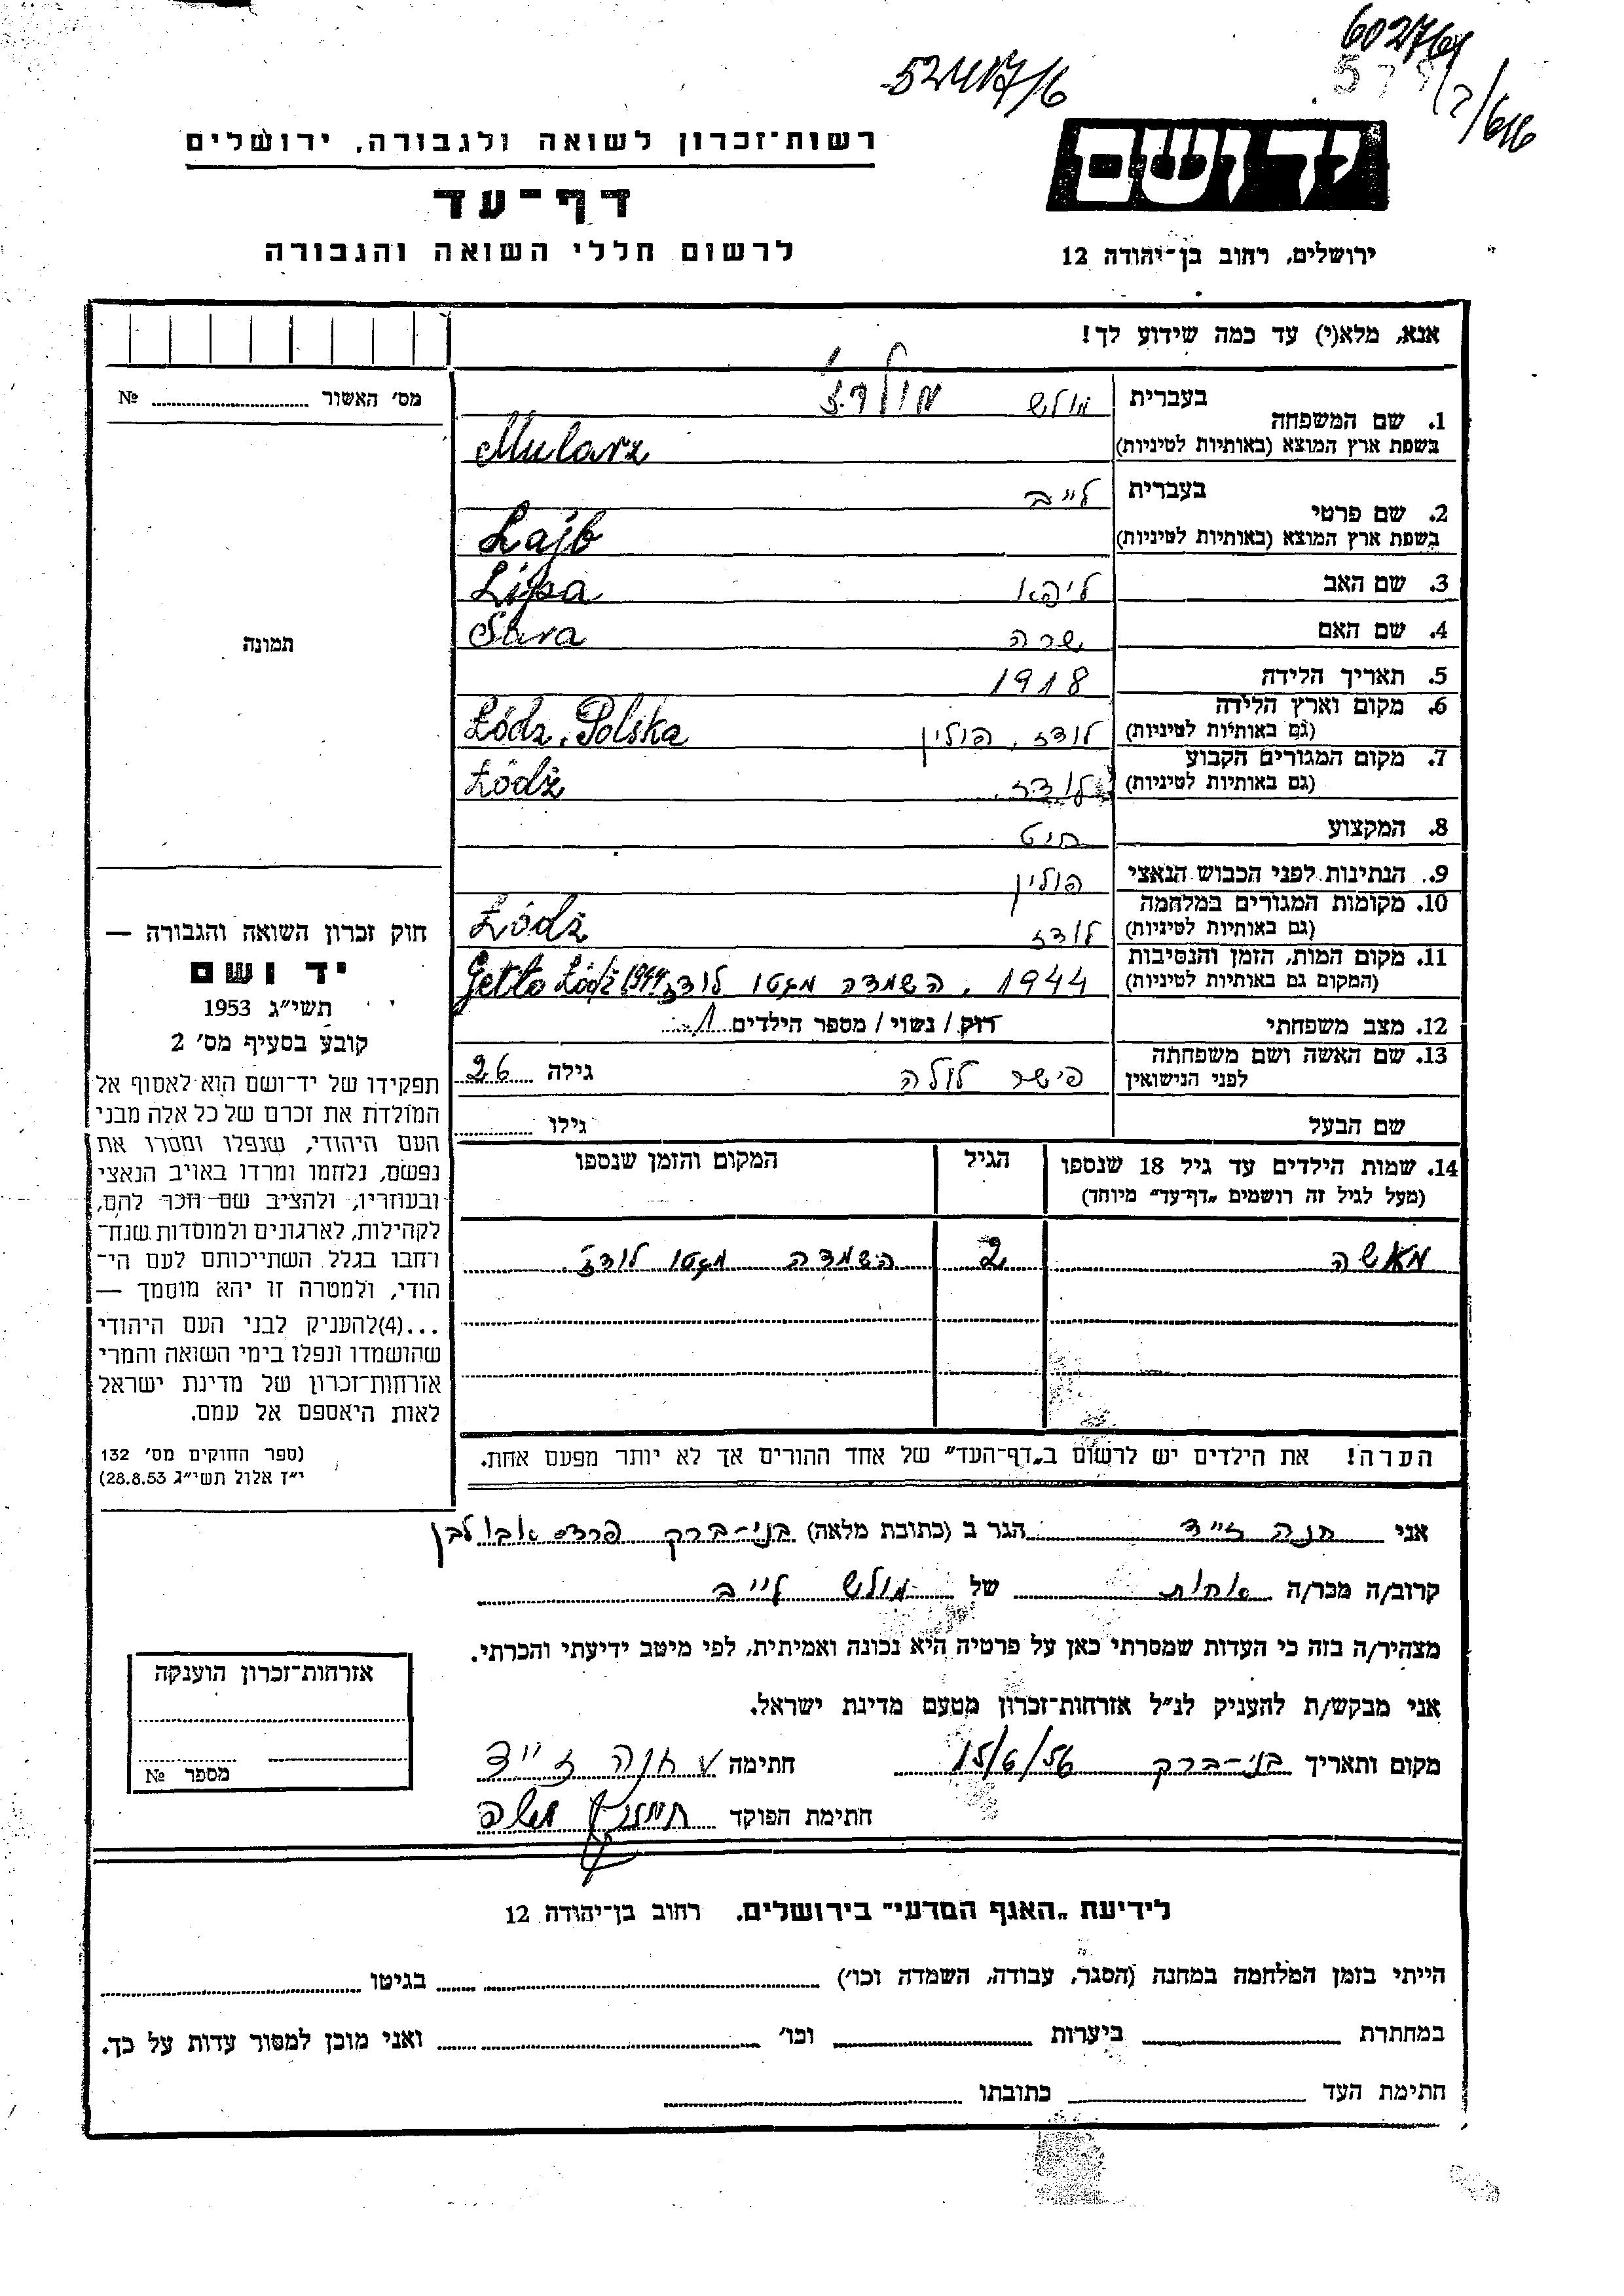 602764
52417/6
616
רשות־זכרון לשואה ולגבורה, ירושלים
יד ושם
דף־עד
לרשום חללי השואה והגבורה
ירושלים, רחוב בן־יהודה 12
אנא, מלא(י) עד כמה שידוע לך!
מס׳ האשור № 
תמונה
חוק זכרון השואה והגבורה —
יד ושם
תשי״ג 1953
קובע בסעיף מס׳ 2
תפקידו של יד־ושם הוא לאסוף אל
המולדת את זכרם של כל אלה מבני
העם היהודי, שנפלו ומסרו את
נפשם, נלחמו ומרדו באויב הנאצי
ובעוזריו, ולהציב שם וזכר להם,
לקהילות, לארגונים ולמוסדות שנח־
רחבו בגלל השתייכותם לעם הי־
הודי, ולמטרה זו יהא מוסמך —
...(4)להעניק לבני העם היהודי
שהושמדו ונפלו בימי השואה והמרי
אזרחות־זכרון של מדינת ישראל
לאות היאספם אל עמם.
(ספר החוקים מס׳ 132
י״ז אלול תשי״ג 28.8.53)
1. שם המשפחה בעברית מולש מולרז׳
בשפת ארץ המוצא (באותיות לטיניות) Mularz
2. שם פרטי בעברית לייב
בשפת ארץ המוצא (באותיות לטיניות) Lajb
3. שם האב ליפא Lipa
4. שם האם שרה Sara
5. תאריך הלידה 1918
6. מקום וארץ הלידה
(גם באותיות לטיניות) לודז, פולין Łódz, Polska
7. מקום המגורים הקבוע
(גם באותיות לטיניות) לודז, Łódż
8. המקצוע חיט
9. הנתינות לפני הכבוש הנאצי פולין
10. מקומות המגורים במלחמה
(גם באותיות לטיניות) לודז Łódż
11. מקום המות, הזמן והנסיבות
(המקום גם באותיות לטיניות) 1944, השמדה מגטו לודז Getto Łódż 1944
12. מצב משפחתי רוק / נשוי / מספר הילדים 1
13. שם האשה ושם משפחתה
לפני הנישואין פישר לולה גילה 26
שם הבעל גילו
14. שמות הילדים עד גיל 18 שנספו הגיל המקום והזמן שנספו
(מעל לגיל זה רושמים „דף־עד״ מיוחד)
מאשה 2 השמדה מגטו לודז
הערה! את הילדים יש לרשום ב„דף־העד״ של אחד ההורים אך לא יותר מפעם אחת.
אני חנה זייד הגר ב (כתובת מלאה) בני־ברק פרדס אבו לבן
קרוב/ה מכר/ה אחות של מולש לייב
מצהיר/ה בזה כי העדות שמסרתי כאן על פרטיה היא נכונה ואמיתית, לפי מיטב ידיעתי והכרתי.
אני מבקש/ת להעניק לנ״ל אזרחות־זכרון מטעם מדינת ישראל.
מקום ותאריך בני־ברק 15/6/56 חתימה חנה זייד
חתימת הפוקד
אזרחות־זכרון הוענקה
מספר №
לידיעת „האגף המדעי״ בירושלים. רחוב בן־יהודה 12
הייתי בזמן המלחמה במחנה (הסגר, עבודה, השמדה וכו׳) בגיטו
במחתרת ביערות וכו׳ ואני מוכן למסור עדות על כך.
חתימת העד כתובתו